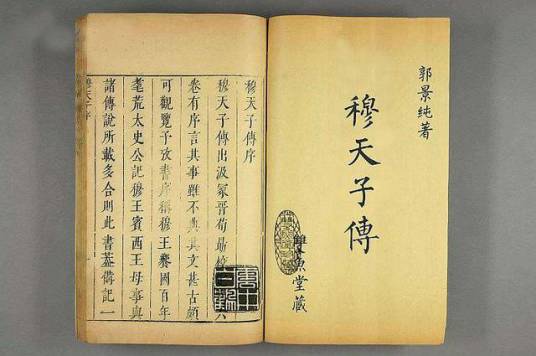 郭景純著
穆天子傳
雙魚堂藏
穆天子傳序
穆天子傳出汲冢晉荀勗校
卷有序言其事雖不典其文甚古頗
可觀覽予攷書序稱穆王饗國百年
耄荒太史公記穆王賓西王母事與
諸傳說所載多合則此書蓋備記一